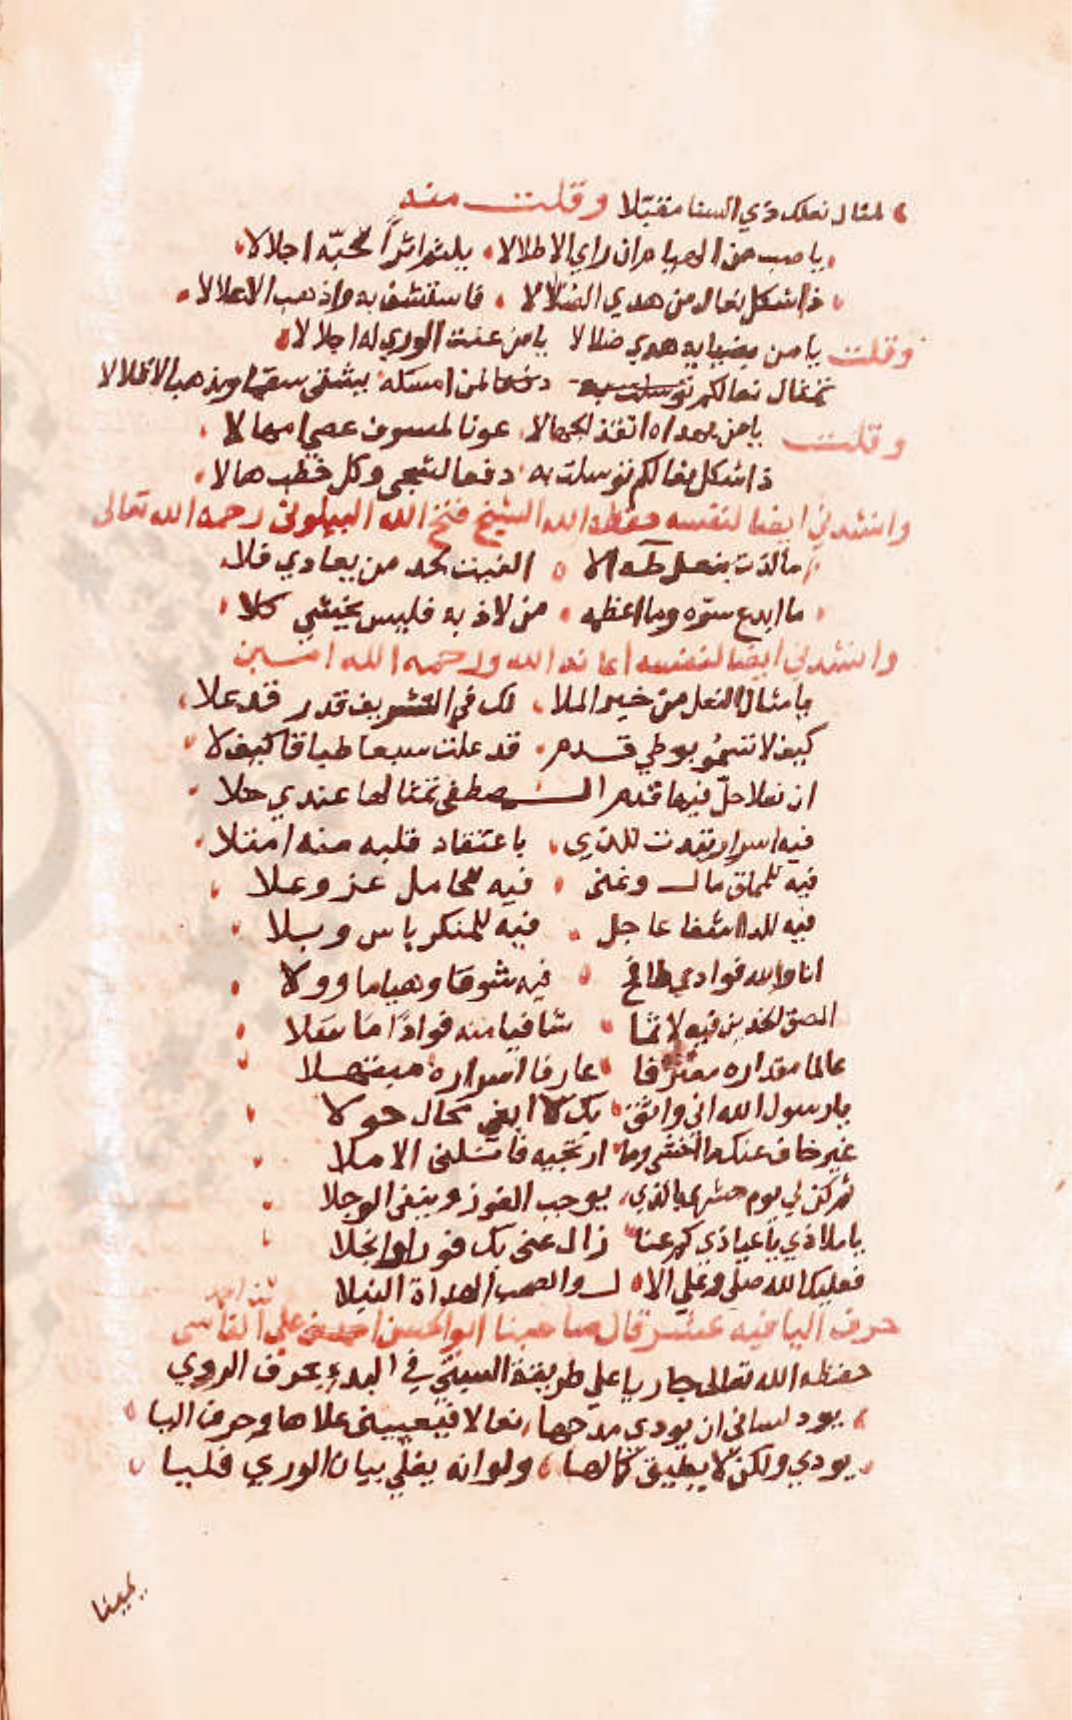 لمثال نعلك ذي السنا مقبلا وقلت منه
يا صب من الهيام ان راي الاطلالا يلثم اثرا لمحبه اجلالا
ذا شكل نعال من هدي الضلالا فاستشف به واذهب الاعلالا
وقلت يا من بضيايه هدي ضلالا يا من عنت الوري له اجلالا
تمثال نعالكم توسلت به لمن امسكه يشفي سقما ويذهب الاظلالا
وقلت يا من بهداه انقذ الجهالا عونا لمسوف عصي امهالا
ذا شكل نعالكم توسلت به دفعا لشجي وكل خطب هالا
وانشدني ايضا لنفسه حفظه الله الشيخ فتح الله البيلوني رحمه الله تعالى
ما لذت بنعل طه الا الفيت بحد من يعادي فلا
ما ابدع سره وما اعظمه من لاذ به فليس يخشي كلا
وانشدني ايضا لنفسه اعانه الله ورحمه الله امين
يا مثال النعل من خير الملا لك في التشريف قدر قد علا
كيف لا تسمو بوطي قدم قد علت سبعا طباقا كيف لا
ان نعلا حل فيها قدم المصطفى تمثالها عندي حلا
فيه اسرار تبدت للذي باعتقاد قلبه منه امتلا
فيه للملق مال وغنى فيه للخامل عز وعلا
فيه للداء شفا عاجل فيه للمنكر باس وبلا
انا والله فوادي طافح فيه شوقا وهياما وولا
الصق الخدين فيه لاثما شافيا منه فوادا ما سلا
عالما مقداره معترفا عارفا اسراره مبتهلا
يا رسول الله اني واثق بك لا ابغي بحال حولا
غير خاف عنك ما اخشى وما ارتجيه فانلني الاملا
ثم كن لي يوم حشري بالذي يوجب الفوز وينفي الوجلا
يا ملاذي يا عياذي كم عنا زال عني بك فورا وانجلا
فعليك الله صلى وعلي الال والصحب الهداة النبلا
حرف اليا فيه عشر قال صاحبنا ابو الحسن احمد بن علي الفاسي
حفظه الله تعالى جاريا علي طريقة السبتي في البدء بحرف الروي
يود لساني ان يودي مدحها نعالا فيعييني علاها وحرف اليا
يودي ولكن لا يطيق كمالها ولو انه يملي بيان الوري فليا
يمينا